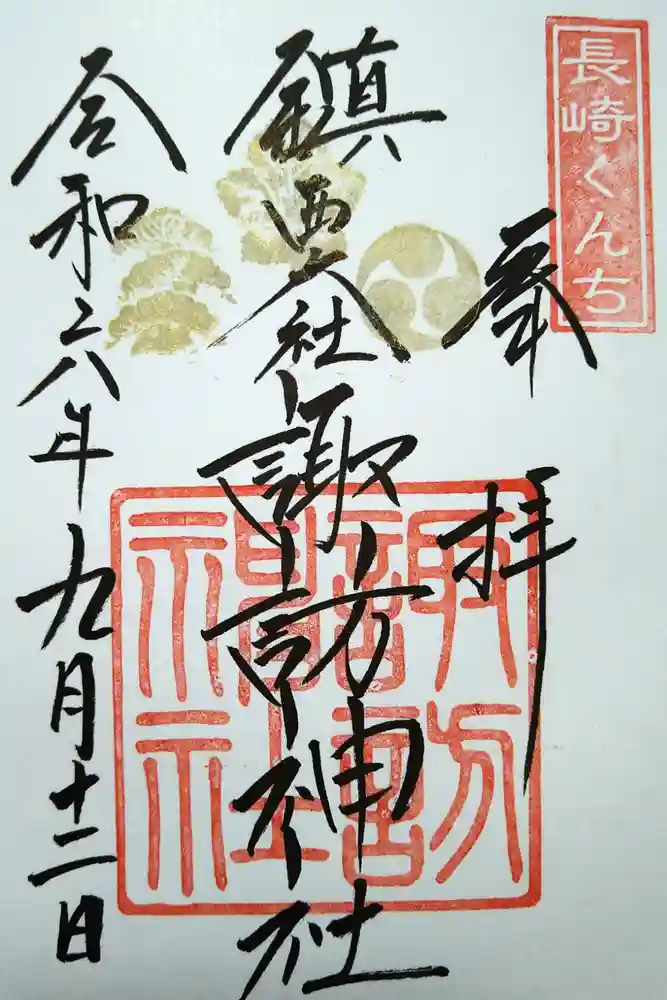 長崎くんち
奉拝
鎮西大社諏訪神社
諏訪
神社
令和六年九月十二日